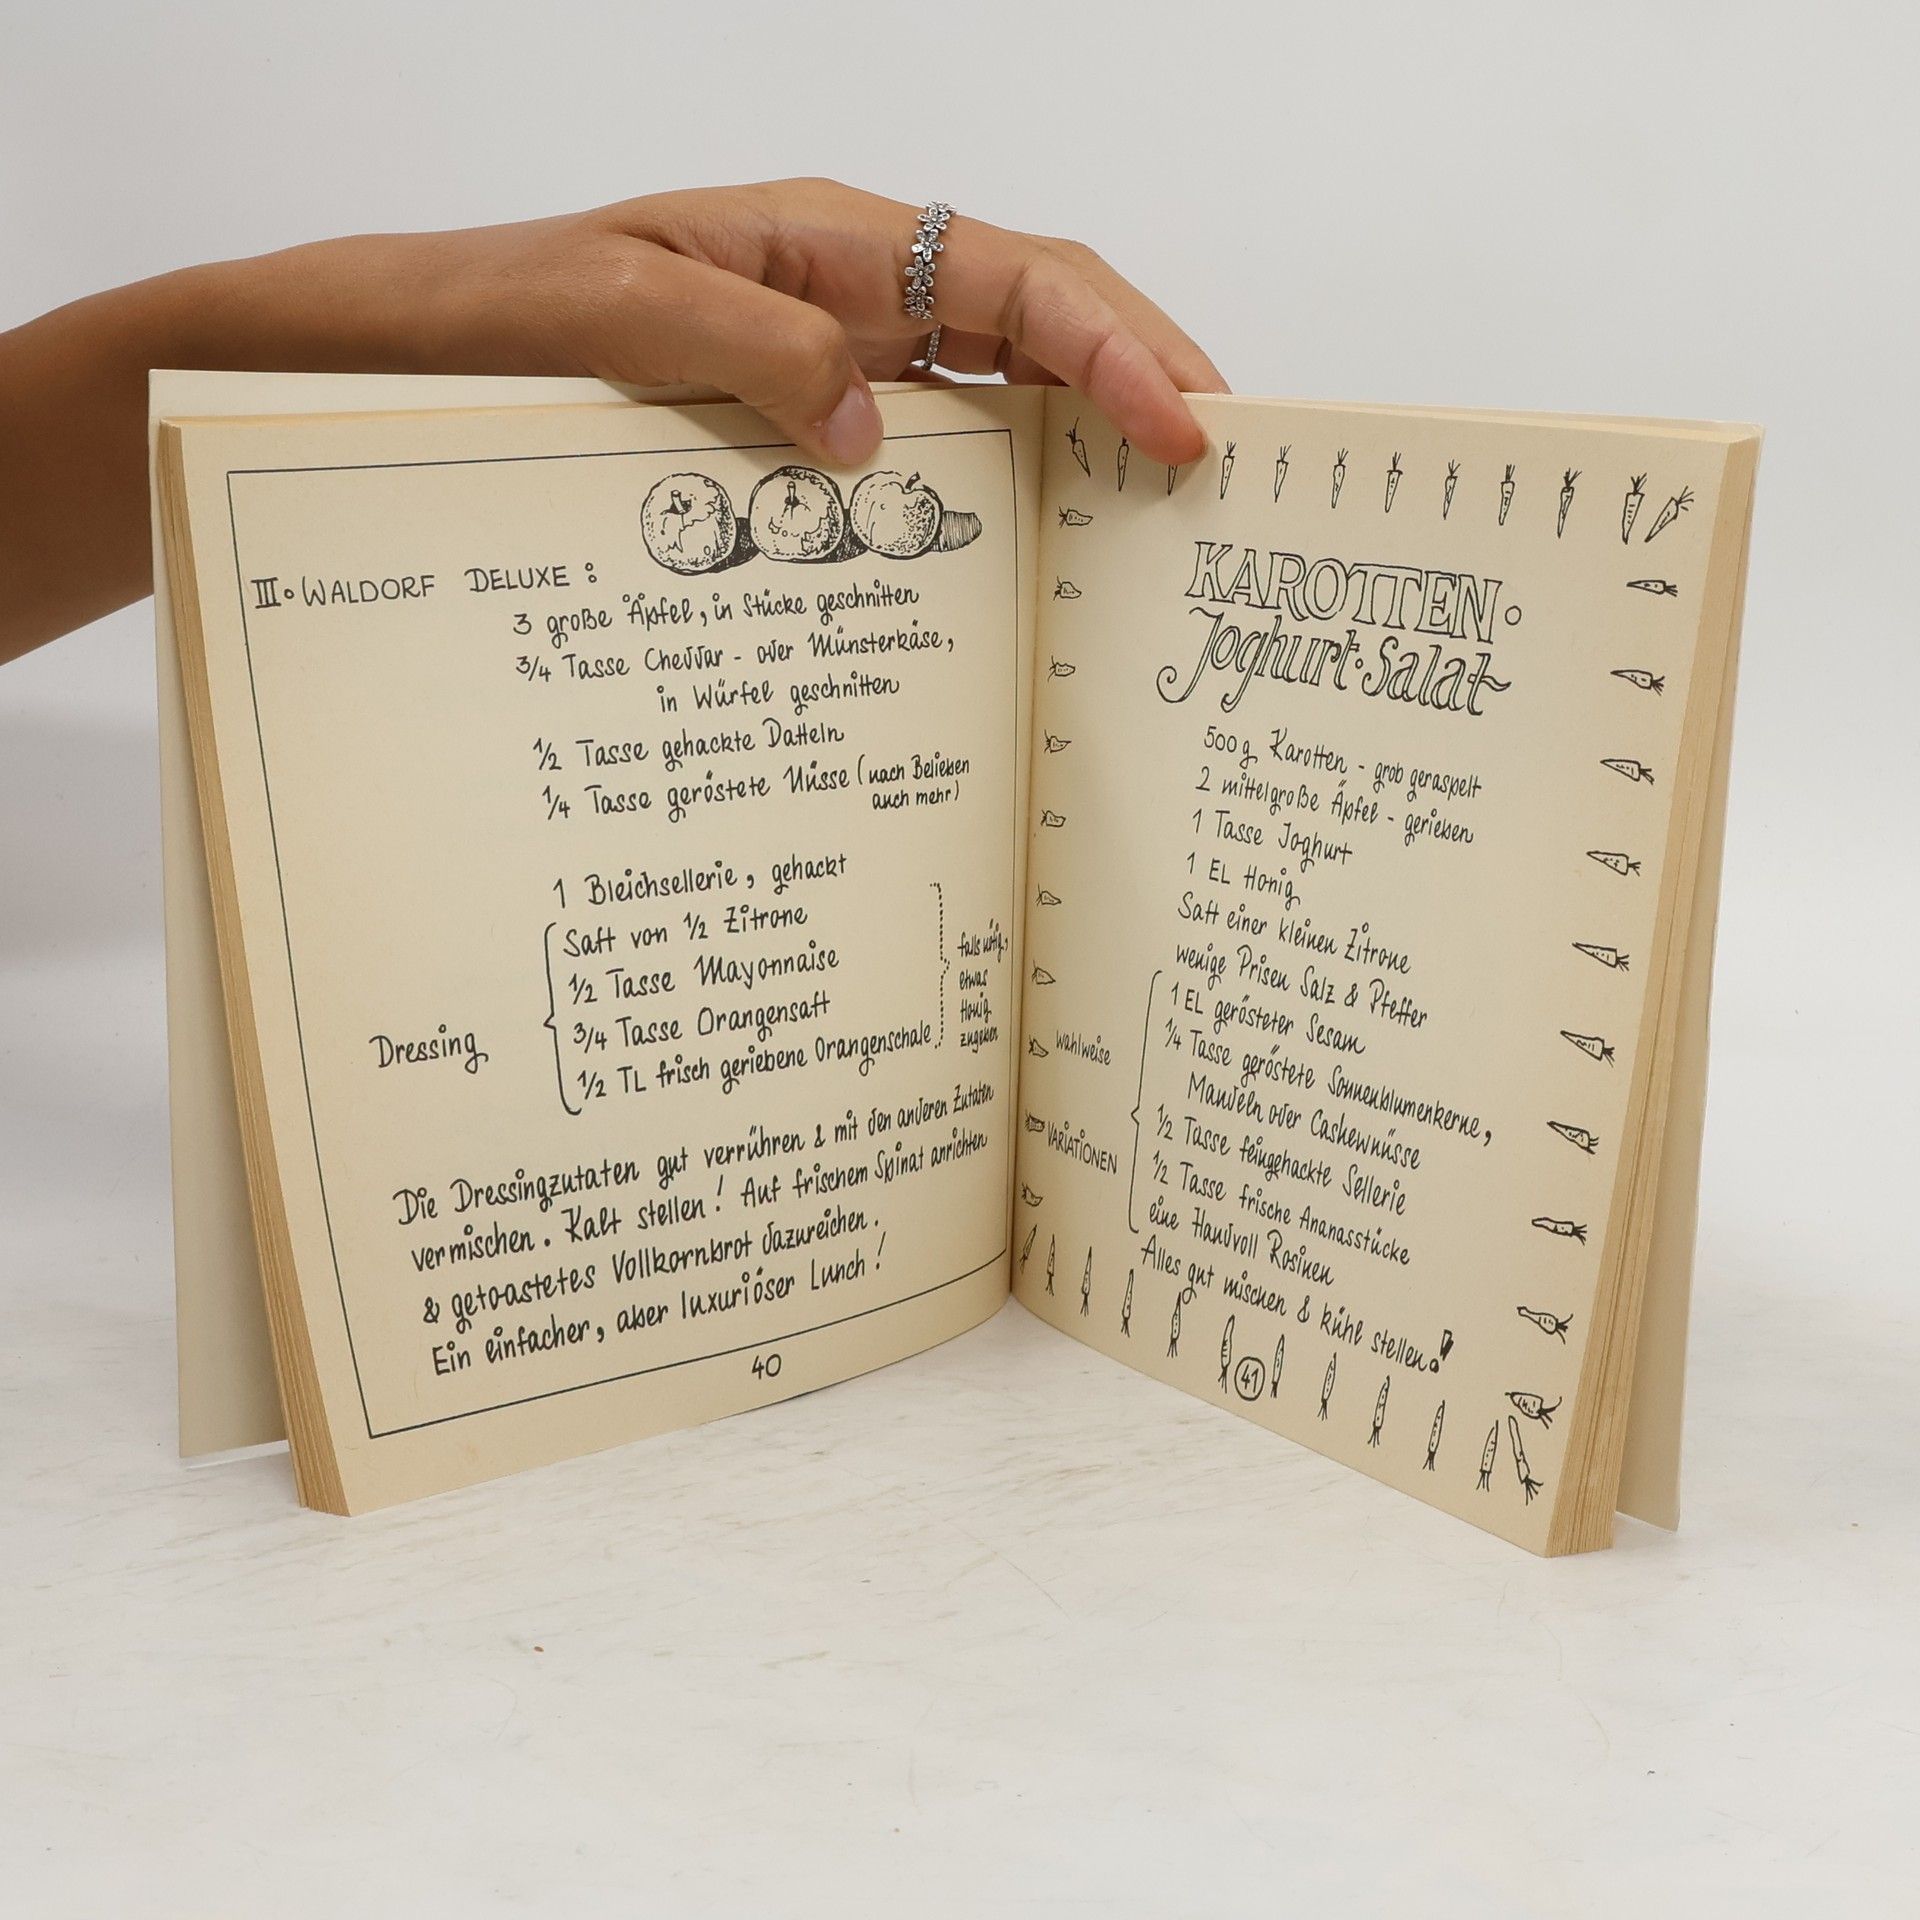 III. WALDORF DELUXE :
3 große Äpfel, in Stücke geschnitten
3/4 Tasse Cheddar - oder Münsterkäse,
in Würfel geschnitten
1/2 Tasse gehackte Datteln
1/4 Tasse geröstete Nüsse (nach Belieben
auch mehr)
1 Bleichsellerie, gehackt
Dressing
Saft von 1/2 Zitrone
1/2 Tasse Mayonnaise
3/4 Tasse Orangensaft
1/2 TL frisch geriebene Orangenschale
falls nötig,
etwas
Honig
zugeben
Die Dressingzutaten gut verrühren & mit den anderen Zutaten
vermischen. Kalt stellen! Auf frischem Spinat anrichten
& getoastetes Vollkornbrot dazureichen.
Ein einfacher, aber luxuriöser Lunch!
40
KAROTTEN.
Joghurt.Salat
500g Karotten - grob geraspelt
2 mittelgroße Äpfel - gerieben
1 Tasse Joghurt
1 EL Honig
Saft einer kleinen Zitrone
wenige Prisen Salz & Pfeffer
wahlweise
VARIATIONEN
1 EL gerösteter Sesam
1/4 Tasse geröstete Sonnenblumenkerne,
Mandeln oder Cashewnüsse
1/2 Tasse feingehackte Sellerie
1/2 Tasse frische Ananasstücke
eine Handvoll Rosinen
Alles gut mischen & kühl stellen!
41